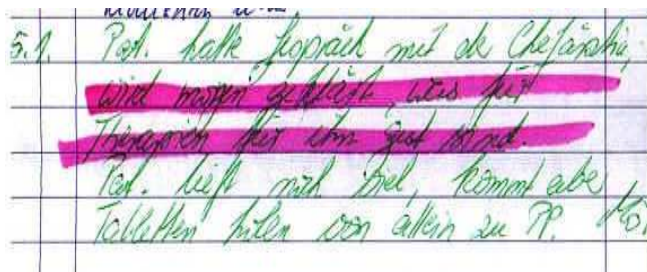 5.1. Pat. hatte Gespräch mit der Chefärztin,
wird morgen geklärt, was für
Therapien für ihn gut sind.
Pat. liegt nach Bel, kommt aber
Tabletten holen von allein zu PP.